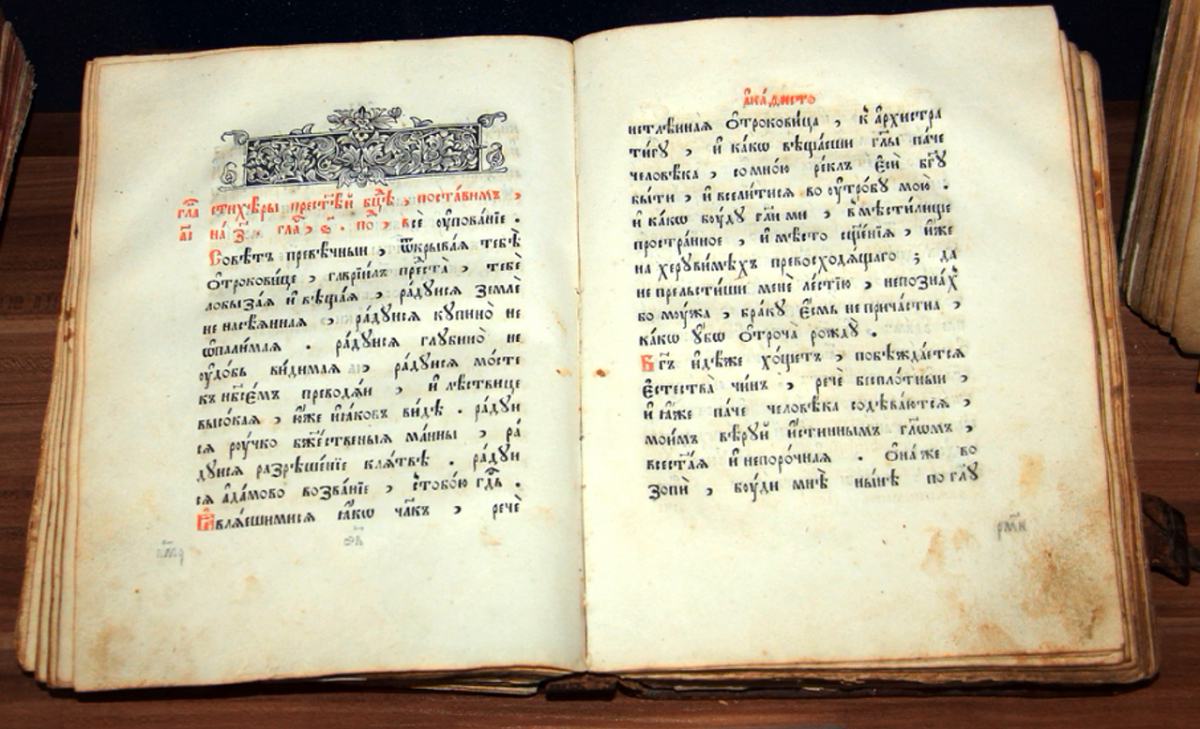 гла̑ стихѣ́ры прест҃ѣ́й бц҃ѣ , поста́вимъ ,
а҃і на з҃ . гла̑ , ѕ҃ . по , всѐ ѹ҆пова́нїе .
Совѣ́тъ превѣ́чныи , ѿкрыва́ѧ тебѣ̀
ѻ҆трокови́це , гаврїи́лъ преста̀ , тебѐ
ловыза́ѧ и҆ вѣща́ѧ , ра́дꙋисѧ земле
не насѣ́ѧннаѧ , ра́дꙋисѧ кꙋпинѡ̀ не
ѡ҆пали́маѧ . ра́дꙋисѧ глꙋбинѡ̀ не
ѹ҆до́бь ви́димаѧ , ра́дꙋисѧ мо́сте
къ нб҃сѣ́мъ преводѧ́и , и҆ лѣ́ствице
высо́каѧ , ю҆́же и҆са́ковъ ви́дѣ . ра́дꙋи
сѧ рꙋ́чко бж҃е́ственыѧ ма́нны , ра́
дꙋисѧ разрѣше́нїе клѧ́твѣ . ра́дꙋи
сѧ а҆да́мово возва́нїе , с тобо́ю гд҃ь .
Ꙗ҆влѧ́ешимисѧ ꙗ҆́кѡ чл҃къ , речѐ
а҆ка́ѳисто
истлѣ́ннаѧ ѻ҆трокови́ца , к҆ а҆рхистра
ти́гꙋ , и҆ ка́кѡ вѣща́еши гл҃ы па́че
человѣ́ка , со мно́ю ре́клъ є҆сѝ бг҃ꙋ
бы́ти , и҆ всели́тисѧ во ѹ҆тро́бꙋ мою̀ .
и҆ ка́кѡ бꙋ́дꙋ гл҃и ми , в҆мѣсти́лище
простра́нное , и҆ мѣ́сто сщ҃е́нїѧ , и҆́же
на херꙋви́мѣхъ превосходѧ́щаго ; да
не прельсти́ши менѐ ле́стїю , не позна́хъ
бо мꙋ́жа , бра́кꙋ є҆́смь не прича́стна ,
ка́кѡ ᲂу҆́бѡ ѻ҆троча̀ рождꙋ̀ .
Бг҃ъ и҆дѣ́же хо́щетъ , побѣжда́етсѧ
є҆стества̀ чи́нъ , речѐ беспло́тныи ,
и҆ ꙗ҆́же па́че человѣ́ка содѣва́ютсѧ ,
мои́мъ вѣ́рꙋй и҆́стиннымъ гл҃ѡмъ ,
всест҃а́ѧ и҆ непоро́чнаѧ . Ѻ҆на́же во
зопѝ , бꙋ́ди мнѣ̀ ны́нѣ по гл҃ꙋ